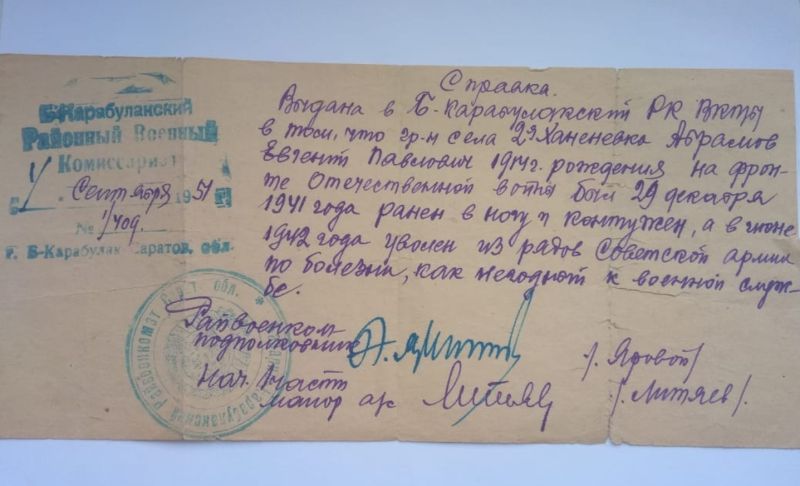 Б-Карабулакский
Районный Военный
Комиссариат
"1/" Сентября 1951 г.
№ 1/409.
г. Б-Карабулак, Саратов. обл.
Справка.
Выдана в Б-Карабулакский РК ВКП(б)
в том, что гр-н села 2я Ханеневка Абрамов
Евгений Павлович 1914г. рождения на фрон-
те Отечественной войны был 29 декабря
1941 года ранен в ногу и контужен, а в июне
1942 года уволен из рядов Советской армии
по болезни, как негодной к военной служ-
бе.
Райвоенком
подполковник
/. Яровой/
Нач. 1 части
майор а/с
/. Литяев/.